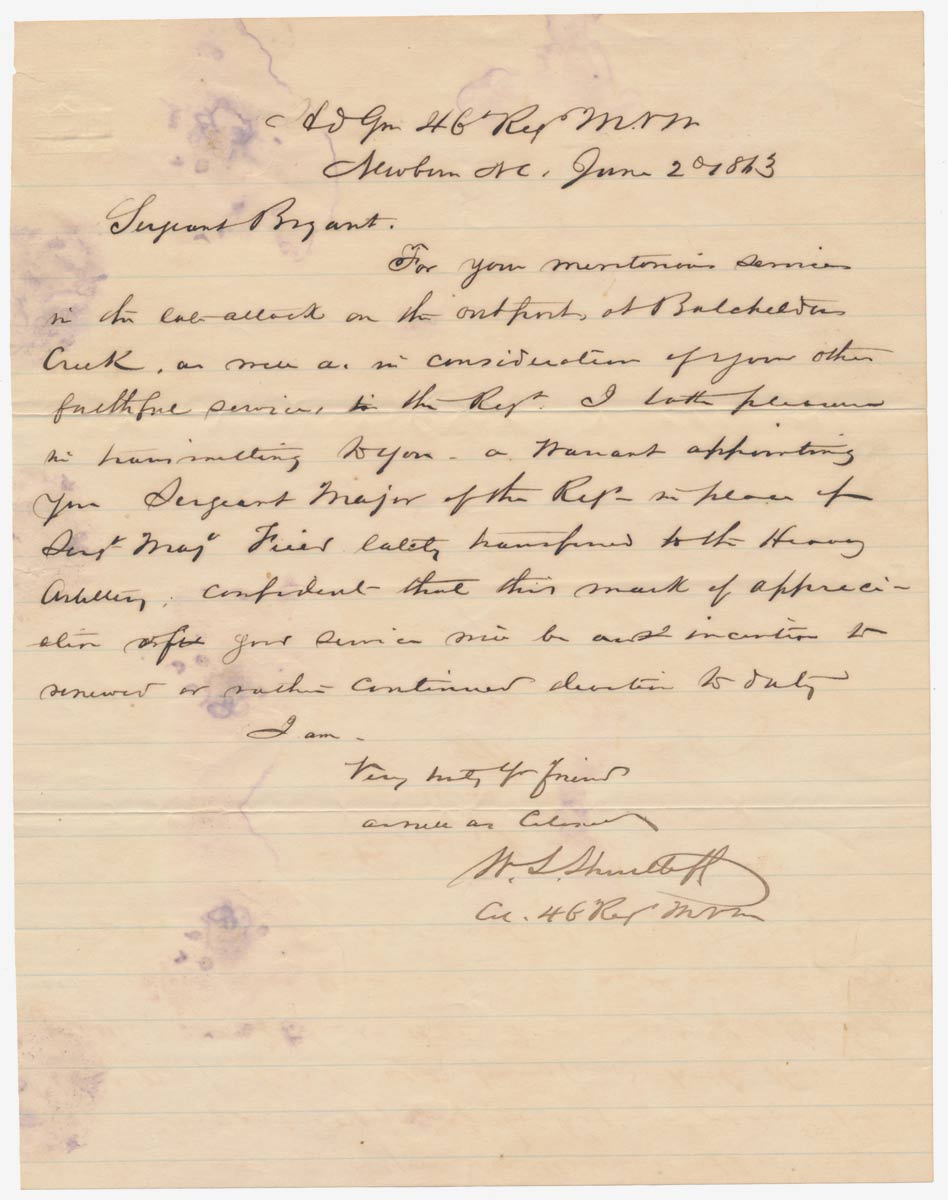 Hd Qrs 46th Regt M.V.M
Newbern NC. June 2d 1863
Sergeant Bryant.
For your meritorious services
in the late attack on the outposts at Batchelders
Creek, as well as in consideration of your other
faithful services to the Regt. I take pleasure
in transmitting to you a Warrant appointing
you Sergeant Major of the Regt in place of
Sergt Majr Field lately transferred to the Heavy
Artillery; confident that this mark of appreci-
ation of good service will be an incentive to
renewed or rather continued devotion to duty
I am
Very truly Yr friend
as well as Colonel
W. S. Shurtleff
Col. 46th Regt M.V.M